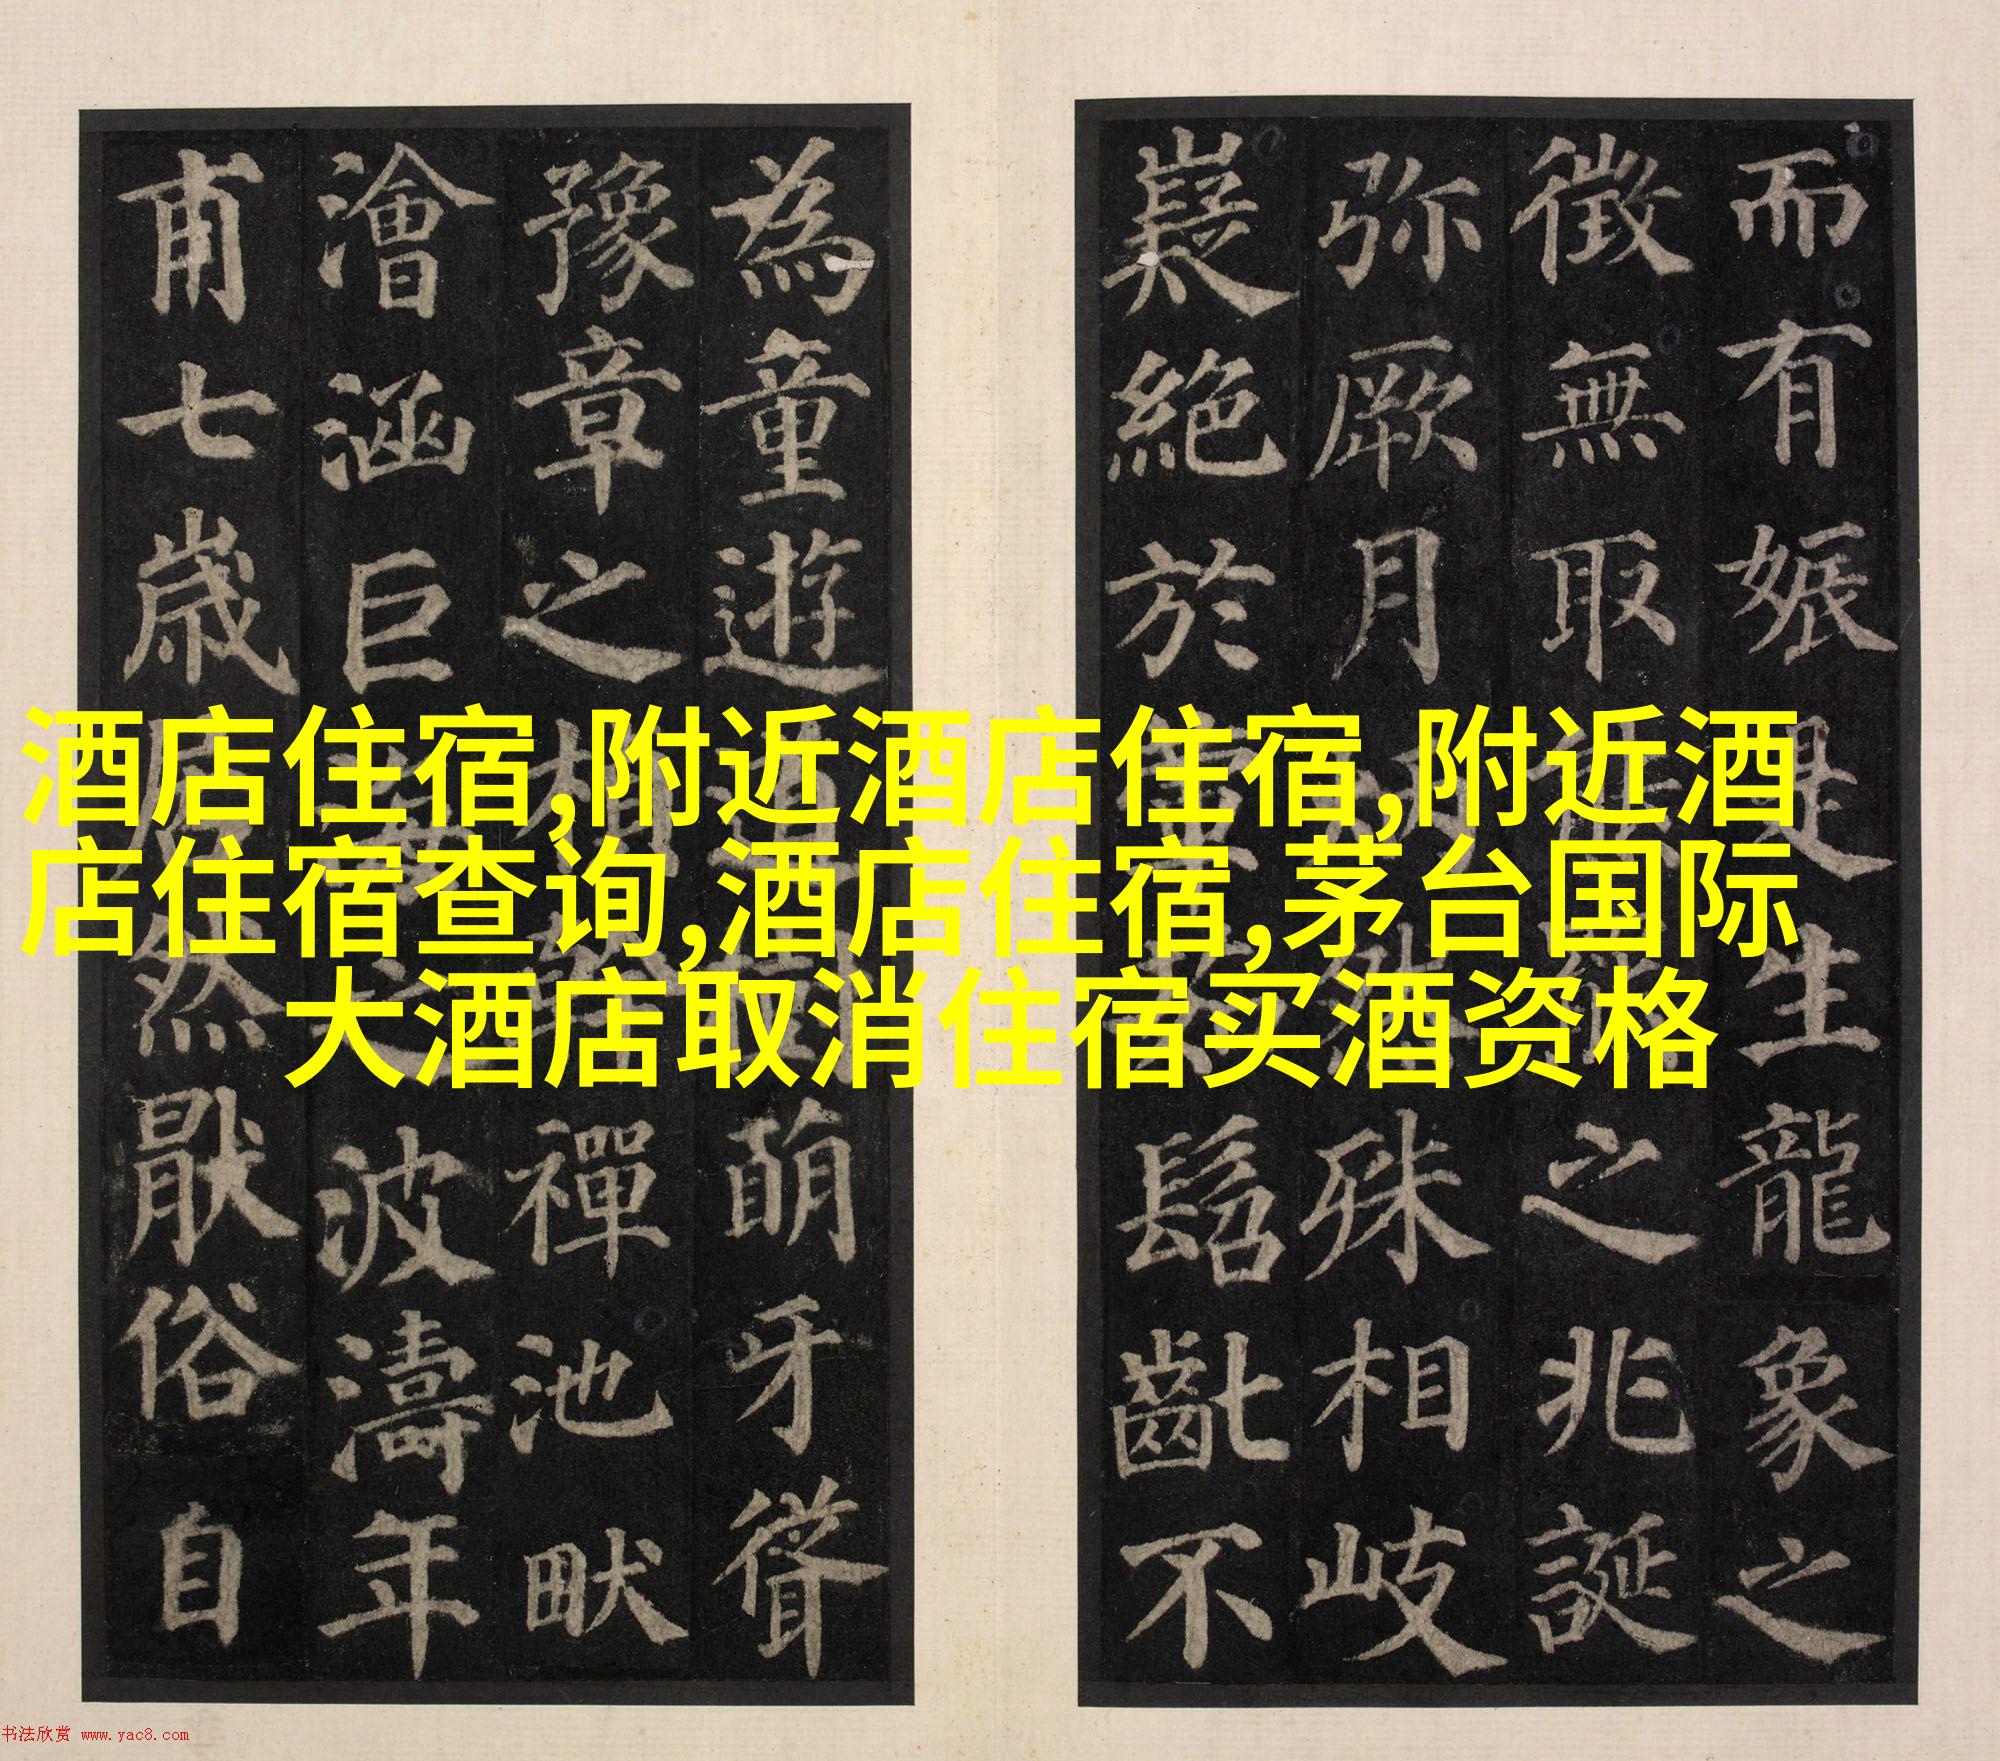 而有娠是生龍象之
徵無取之兆誕
弥厥月殊相岐
嶷絕於髫齓不
為童遊萌牙聳
豫章之禪池畎
澮涵巨波濤年
甫七歲居然猒俗自
酒店住宿,附近酒店住宿,附近酒
店住宿查询,酒店住宿,茅台国际
大酒店取消住宿买酒资格
书法欣赏 www.yac8.com